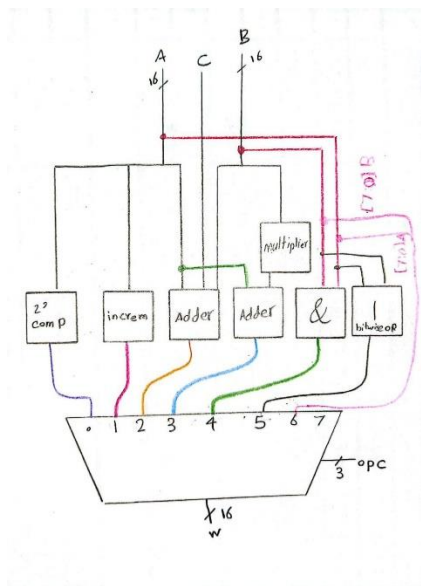 A
C
B
16
16
B[7:0]
A[7:0]
multiplier
2's
comp
increm
Adder
Adder
&
|
bitwise OR
0 1 2 3 4 5 6 7
3
opc
16
w